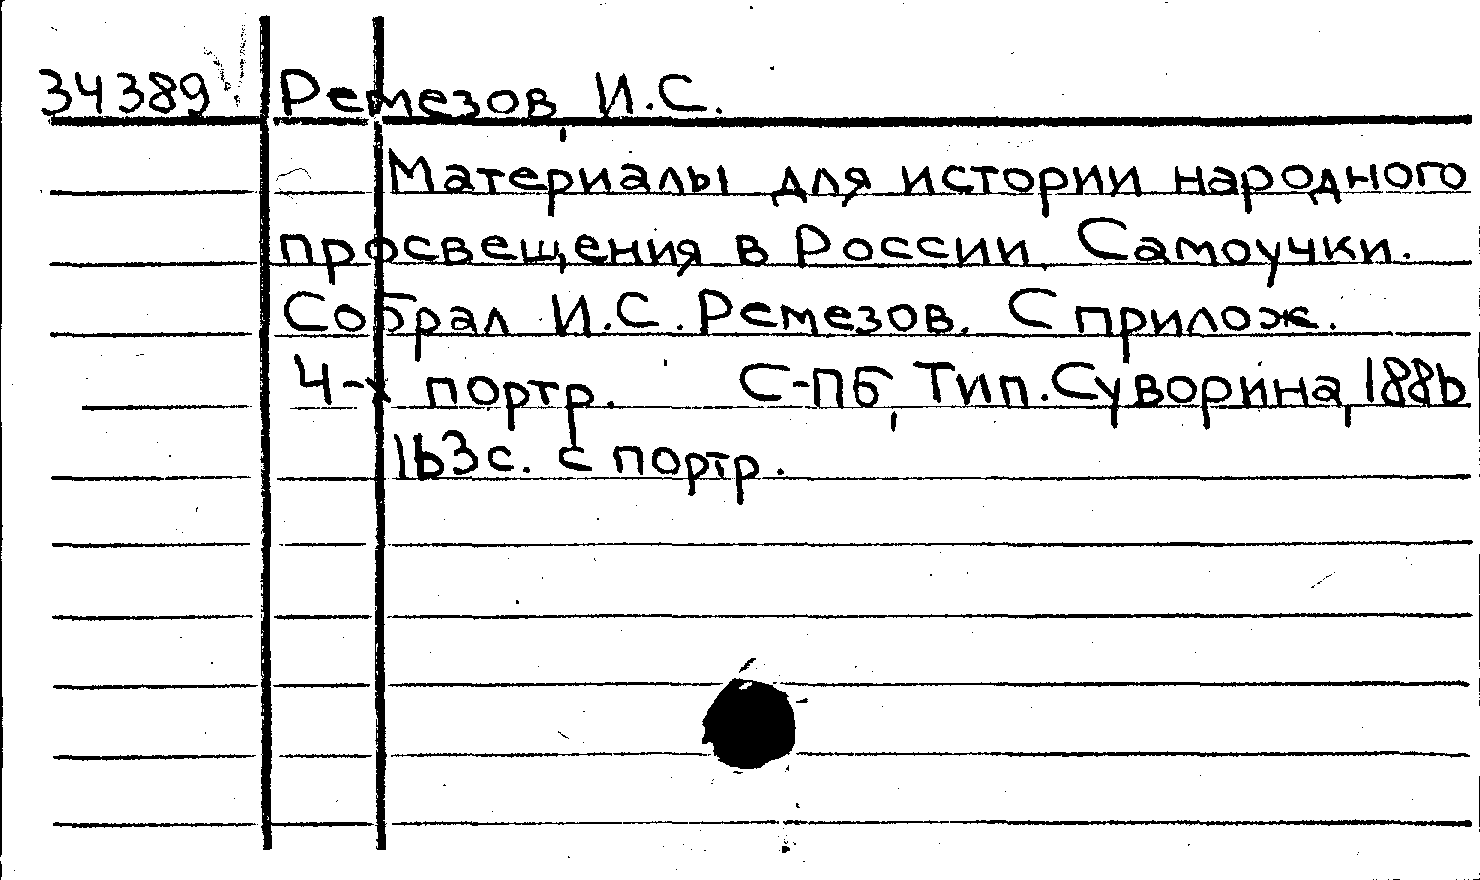 34389 Ремезов, И.С.
Материалы для истории народного
просвещения в России. Самоучки.
Собрал И.С. Ремезов. С прилож.
4-х портр. С-Пб, Тип. Суворина, 1886
163 с. с портр.